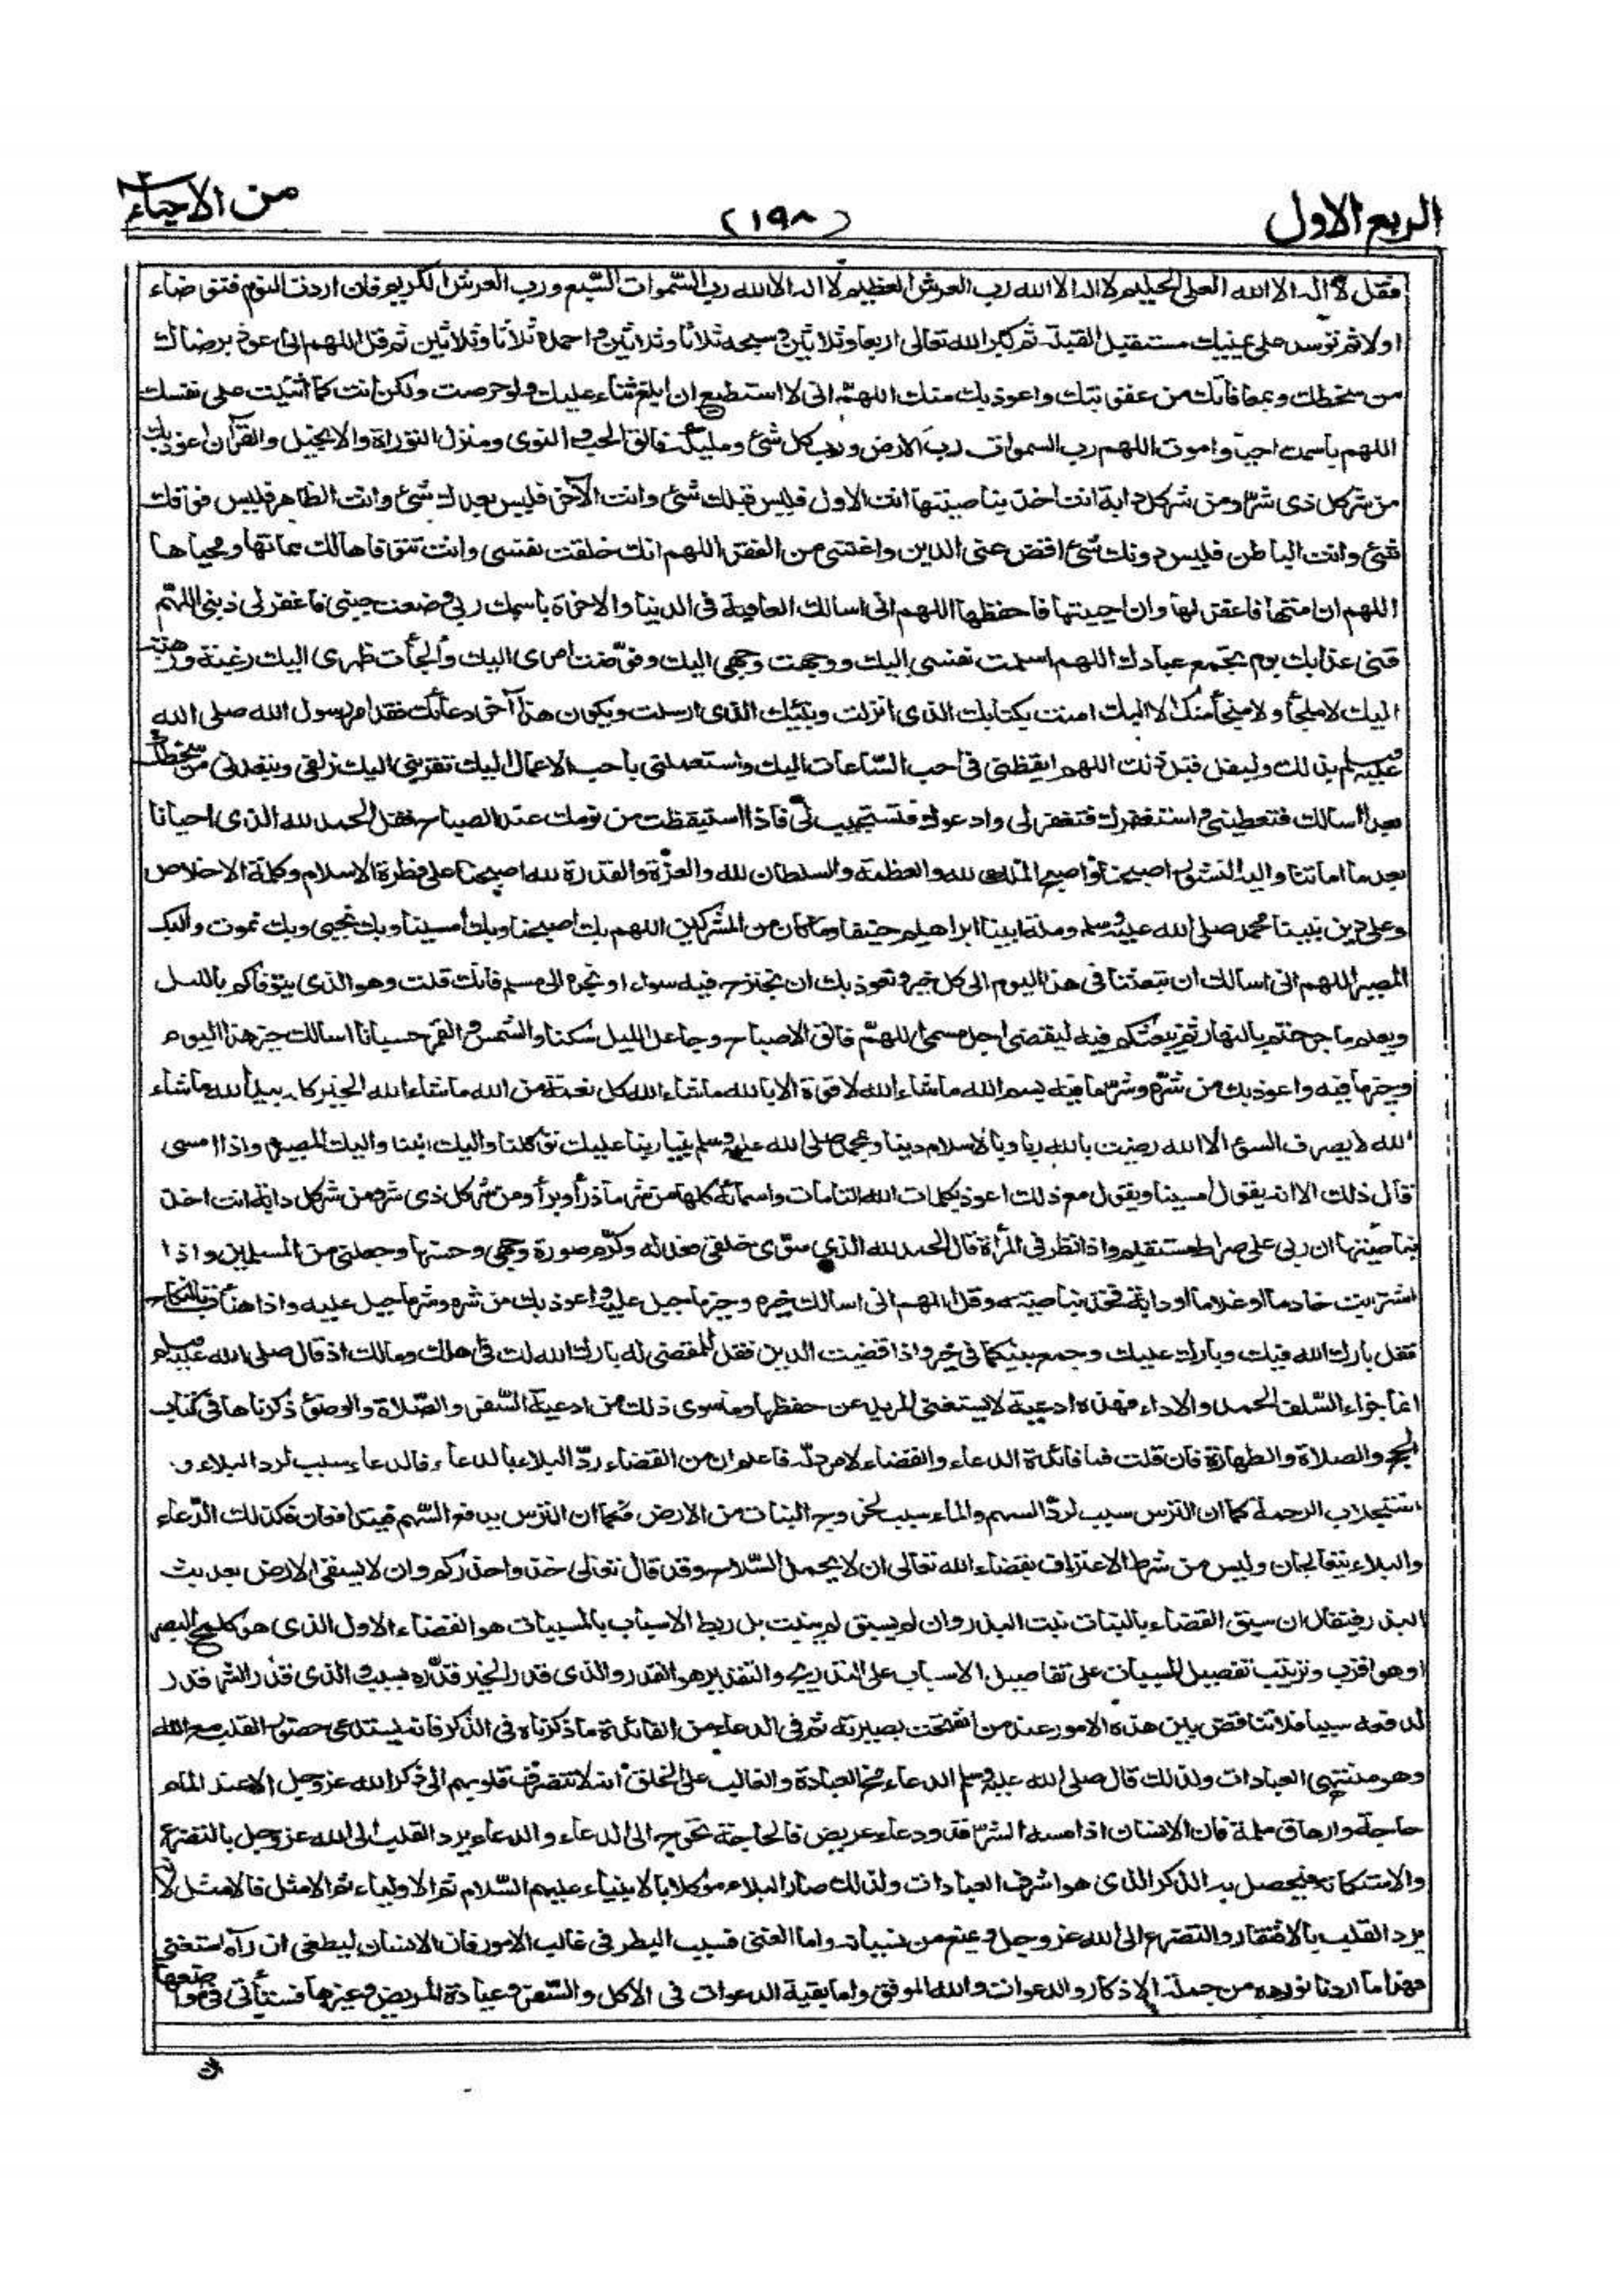 الربع الاول
(١٩٨)
من الاحياء
فقل لا اله الا الله العلى الحليم لا اله الا الله رب العرش العظيم لا اله الا الله رب السموات السبع ورب العرش الكريم فان اردت النوم فتوضاء
اولا ثم توسد على يمينك مستقبل القبلة ثم كبر الله تعالى اربعا وثلاثين وسبحه ثلاثا وثلاثين واحمده ثلاثا وثلاثين ثم قل اللهم انى اعوذ برضاك
من سخطك وبمعافاتك من عقوبتك واعوذ بك منك اللهم انى لا استطيع ان ابلغ ثناء عليك ولو حرصت ولكن انت كما اثنيت على نفسك
اللهم باسمك احيا واموت اللهم رب السموات رب الارض ورب كل شئ ومليكه فالق الحب والنوى ومنزل التوراة والانجيل والقرآن اعوذ بك
من شر كل ذى شر ومن شر كل دابة انت اخذ بناصيتها انت الاول فليس قبلك شئ وانت الآخر فليس بعدك شئ وانت الظاهر فليس فوقك
شئ وانت الباطن فليس دونك شئ اقض عنى الدين واغننى من الفقر اللهم انك خلقت نفسى وانت تتوفاها لك مماتها ومحياها
اللهم ان امتها فاغفر لها وان احييتها فاحفظها اللهم انى اسالك العافية فى الدنيا والاخرة باسمك ربى وضعت جنبى فاغفر لى ذنبى اللهم
قنى عذابك يوم تجمع عبادك اللهم اسلمت نفسى اليك ووجهت وجهى اليك وفوضت امرى اليك وألجأت ظهرى اليك رغبة ورهبة
اليك لا ملجأ ولا منجأ منك الا اليك امنت بكتابك الذى انزلت ونبيك الذى ارسلت ويكون هذا آخر دعائك فقد امر رسول الله صلى الله
عليه وسلم بذلك وليقل قبل ذلك اللهم ايقظنى فى احب الساعات اليك واستعملنى باحب الاعمال اليك تقربنى اليك زلفى وتبعدنى من سخطك
بعدا اسالك فتعطينى واستغفرك فتغفر لى وادعوك فتستجيب لى فاذا استيقظت من نومك عند الصباح فقل الحمد لله الذى احيانا
بعد ما اماتنا واليه النشور اصبحنا واصبح الملك لله والعظمة والسلطان لله والعزة والقدرة لله اصبحنا على فطرة الاسلام وكلمة الاخلاص
وعلى دين نبينا محمد صلى الله عليه وسلم وملة ابينا ابراهيم حنيفا وما كان من المشركين اللهم بك اصبحنا وبك امسينا وبك نحيى وبك نموت واليك
المصير اللهم انى اسالك ان تبعثنا فى هذا اليوم الى كل خير ونعوذ بك ان نجترح فيه سواء او نجره الى مسلم فانك قلت وهو الذى يتوفاكم بالليل
ويعلم ما جرحتم بالنهار ثم يبعثكم فيه ليقضى اجل مسمى اللهم فالق الاصباح وجاعل الليل سكنا والشمس والقمر حسبانا اسالك خير هذا اليوم
وخير ما فيه واعوذ بك من شره وشر ما فيه بسم الله ما شاء الله لا قوة الا بالله ما شاء الله كل نعمة من الله ما شاء الله الخير كله بيد الله ما شاء
الله لا يصرف السوء الا الله رضيت بالله ربا وبالاسلام دينا وبمحمد صلى الله عليه وسلم نبيا ربنا عليك توكلنا واليك انبنا واليك المصير واذا امسى
قال ذلك الا انه يقول امسينا ويقول مع ذلك اعوذ بكلمات الله التامات واسمائه كلها من شر ما ذرأ وبرأ ومن شر كل ذى شر ومن شر كل دابة انت اخذ
بناصيتها ان ربى على صراط مستقيم واذا نظر فى المرأة قال الحمد لله الذى سوى خلقى فعدله وكرم صورة وجهى وحسنها وجعلنى من المسلمين واذا
اشتريت خادما او غلاما او دابة فخذ بناصيته وقل اللهم انى اسالك خيره وخير ما جبل عليه واعوذ بك من شره وشر ما جبل عليه واذا هنأت بالنكاح
فقل بارك الله فيك وبارك عليك وجمع بينكما فى خير واذا قضيت الدين فقل للمقضى له بارك الله لك فى اهلك ومالك اذ قال صلى الله عليه وسلم
انما جزاء السلف الحمد والاداء فهذه ادعية لا يستغنى المريد عن حفظها وما سوى ذلك من ادعية السفر والصلاة والوضوء ذكرناها فى كتاب
الحج والصلاة والطهارة فان قلت فما فائدة الدعاء والقضاء لا مرد له فاعلم ان من القضاء رد البلاء بالدعاء فالدعاء سبب لرد البلاء و
استجلاب الرحمة كما ان الترس سبب لرد السهم والماء سبب لخروج النبات من الارض فكما ان الترس يدفع السهم فيتدافعان فكذلك الدعاء
والبلاء يتعالجان وليس من شرط الاعتراف بقضاء الله تعالى ان لا يحمل السلاح وقد قال تعالى خذوا حذركم وان لا يسقى الارض بعد بث
البذر فيقال ان سبق القضاء بالنبات نبت البذر وان لم يسبق لم ينبت بل ربط الاسباب بالمسببات هو القضاء الاول الذى هو كلمح البصر
او هو اقرب وترتيب تفصيل المسببات على تفاصيل الاسباب على التدريج والتقدير هو القدر والذى قدر الخير قدره بسبب والذى قدر الشر قدر
لدفعه سببا فلا تناقض بين هذه الامور عند من انفتحت بصيرته ثم فى الدعاء من الفائدة ما ذكرناه فى الذكر فانه يستدعى حضور القلب مع الله
وهو منتهى العبادات ولذلك قال صلى الله عليه وسلم الدعاء مخ العبادة والغالب على الخلق انه لا تنصرف قلوبهم الى ذكر الله عز وجل الا عند المام
حاجة وارهاق ملمة فان الانسان اذا مسه الشر فذو دعاء عريض فالحاجة تحوج الى الدعاء والدعاء يرد القلب الى الله عز وجل بالتضرع
والاستكانة فيحصل به الذكر الذى هو اشرف العبادات ولذلك صار البلاء موكلا بالانبياء عليهم السلام ثم الاولياء ثم الامثل فالامثل لانه
يرد القلب بالافتقار والتضرع الى الله عز وجل ويمنع من نسيانه واما الغنى فسبب البطر فى غالب الامور فان الانسان ليطغى ان رآه استغنى
فهذا ما اردنا نورده من جملة الاذكار والدعوات والله الموفق واما بقية الدعوات فى الاكل والسفر وعيادة المريض وغيرها فستأتى فى مواضعها